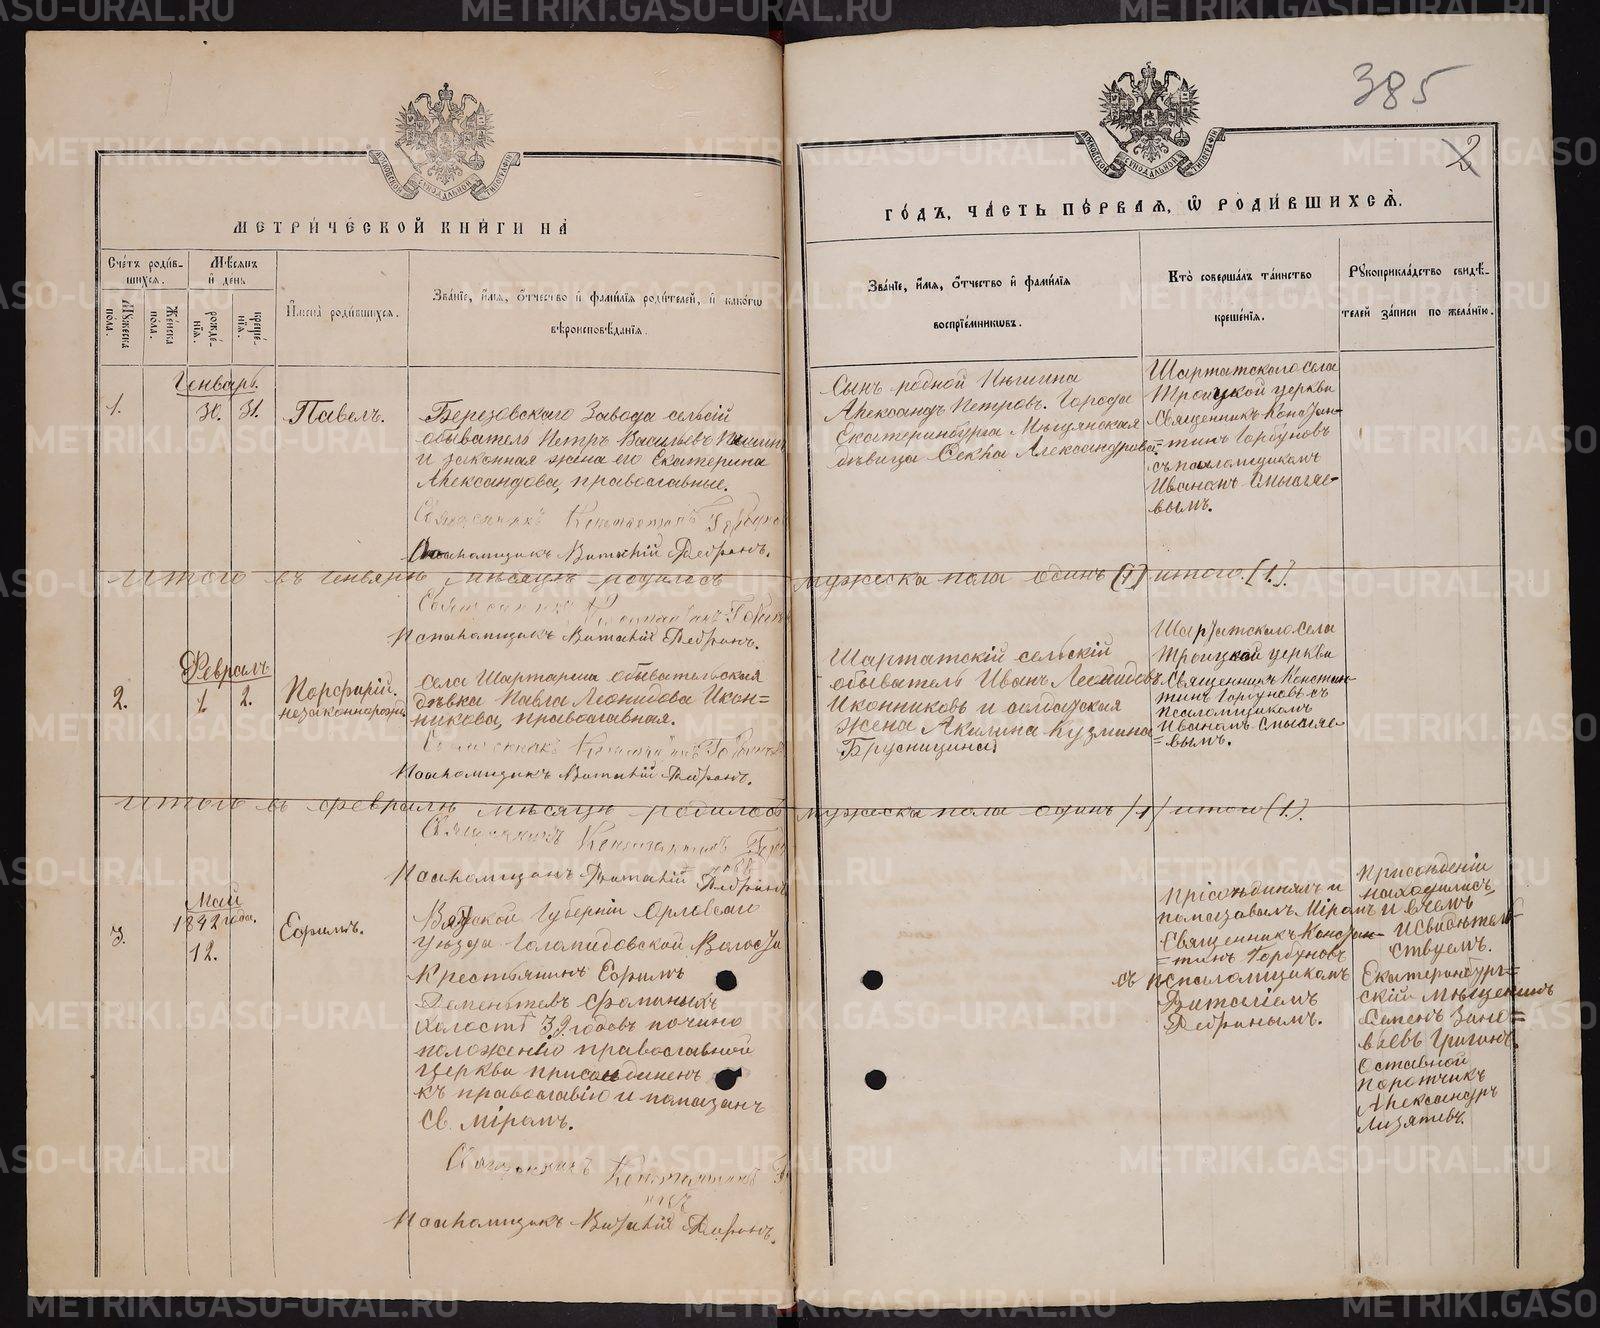 385
2
МОСКОВСКОЙ СѴНОДАЛЬНОЙ ТИПОГРАФІИ
МОСКОВСКОЙ СѴНОДАЛЬНОЙ ТИПОГРАФІИ
МЕТРИ́ЧЕСКОЙ КНИ́ГИ НА̀
ГО́ДЪ, ЧА́СТЬ ПЕ́РВАЯ, Ѡ РОДИ́ВШИХСЯ.
Сче́тъ роди́вшихся.
Мꙋжеска по́ла.
Же́нска по́ла.
Мѣ́сяцъ и҆ де́нь
рожде́нїя.
креще́нїя.
И҆мена̀ роди́вшихся.
Зва́нїе, и҆́мя, ѻ҆́тчество и҆ фами́лїя роди́телей, и҆ како́гѡ
вѣроисповѣ́данїя.
Зва́нїе, и҆́мя, ѻ҆́тчество и҆ фами́лїя
воспрїе́мникѡвъ.
Кто̀ соверша́лъ та́инство
креще́нїя.
Рꙋкоприкла́дство свидѣ́-
телей за́писи по жела́нїю.
Генварь.
1.
30. 31.
Павелъ.
Березовскаго Завода сельскій
обыватель Петръ Васильевъ
и законная жена его Екатерина
Александрова, православные.
Священникъ Константинъ Горбуновъ
Псаломщикъ Виталій
Сынъ родной
Александръ Петровъ. Города
Екатеринбурга Мѣщанская
дѣвица Александрова.
Шарташскаго села
Троицкой церкви
Священникъ Констан-
=тинъ Горбуновъ
съ псаломщикомъ
Иваномъ Смысляе-
вымъ.
Итого въ Генварѣ мѣсяцѣ родилось мужеска пола одинъ (1) итого (1).
Священникъ Константинъ
Псаломщикъ Виталій
Февраль
2.
1. 2.
Порфирій.
незаконнорожд.
села Шарташа обывательская
дѣвка Павла Леонидова Икон=
никова, православная.
Священникъ Константинъ
Псаломщикъ Виталій
Шарташскій сельскій
обыватель Иванъ Леонидовъ
Иконниковъ и солдатская
жена Акилина Кузмина
Брусницина.
Шарташскаго села
Троицкой церкви
Священникъ Констан-
тинъ Горбуновъ съ
псаломщикомъ
Иваномъ Смысляе-
=вымъ.
Итого въ Февралѣ мѣсяцѣ родилось мужеска пола одинъ (1) итого (1).
Священникъ Константинъ
Псаломщикъ Виталій
Май
1842 года.
3.
12.
Ефимъ.
Вятской Губерніи Орловскаго
уѣзда Волости
Крестьянинъ Ефимъ
Дементьевъ Фоминыхъ
Холостъ 39 годовъ по чино
положенію православной
церкви присоединенъ
къ православію и помазанъ
Св. Міромъ.
Священникъ Константинъ
Псаломщикъ Виталій
Присоединялъ и
помазывалъ Міромъ
Священникъ Констан-
=тинъ Горбуновъ
съ псаломщикомъ
Виталіемъ
При
находились
и въ чемъ
и Свидѣтель-
ствуемъ.
Екатеринбург=
скій Мѣщанинъ
Семенъ
Оставной
Поротчикъ
Александръ
METRIKI.GASO-URAL.RU